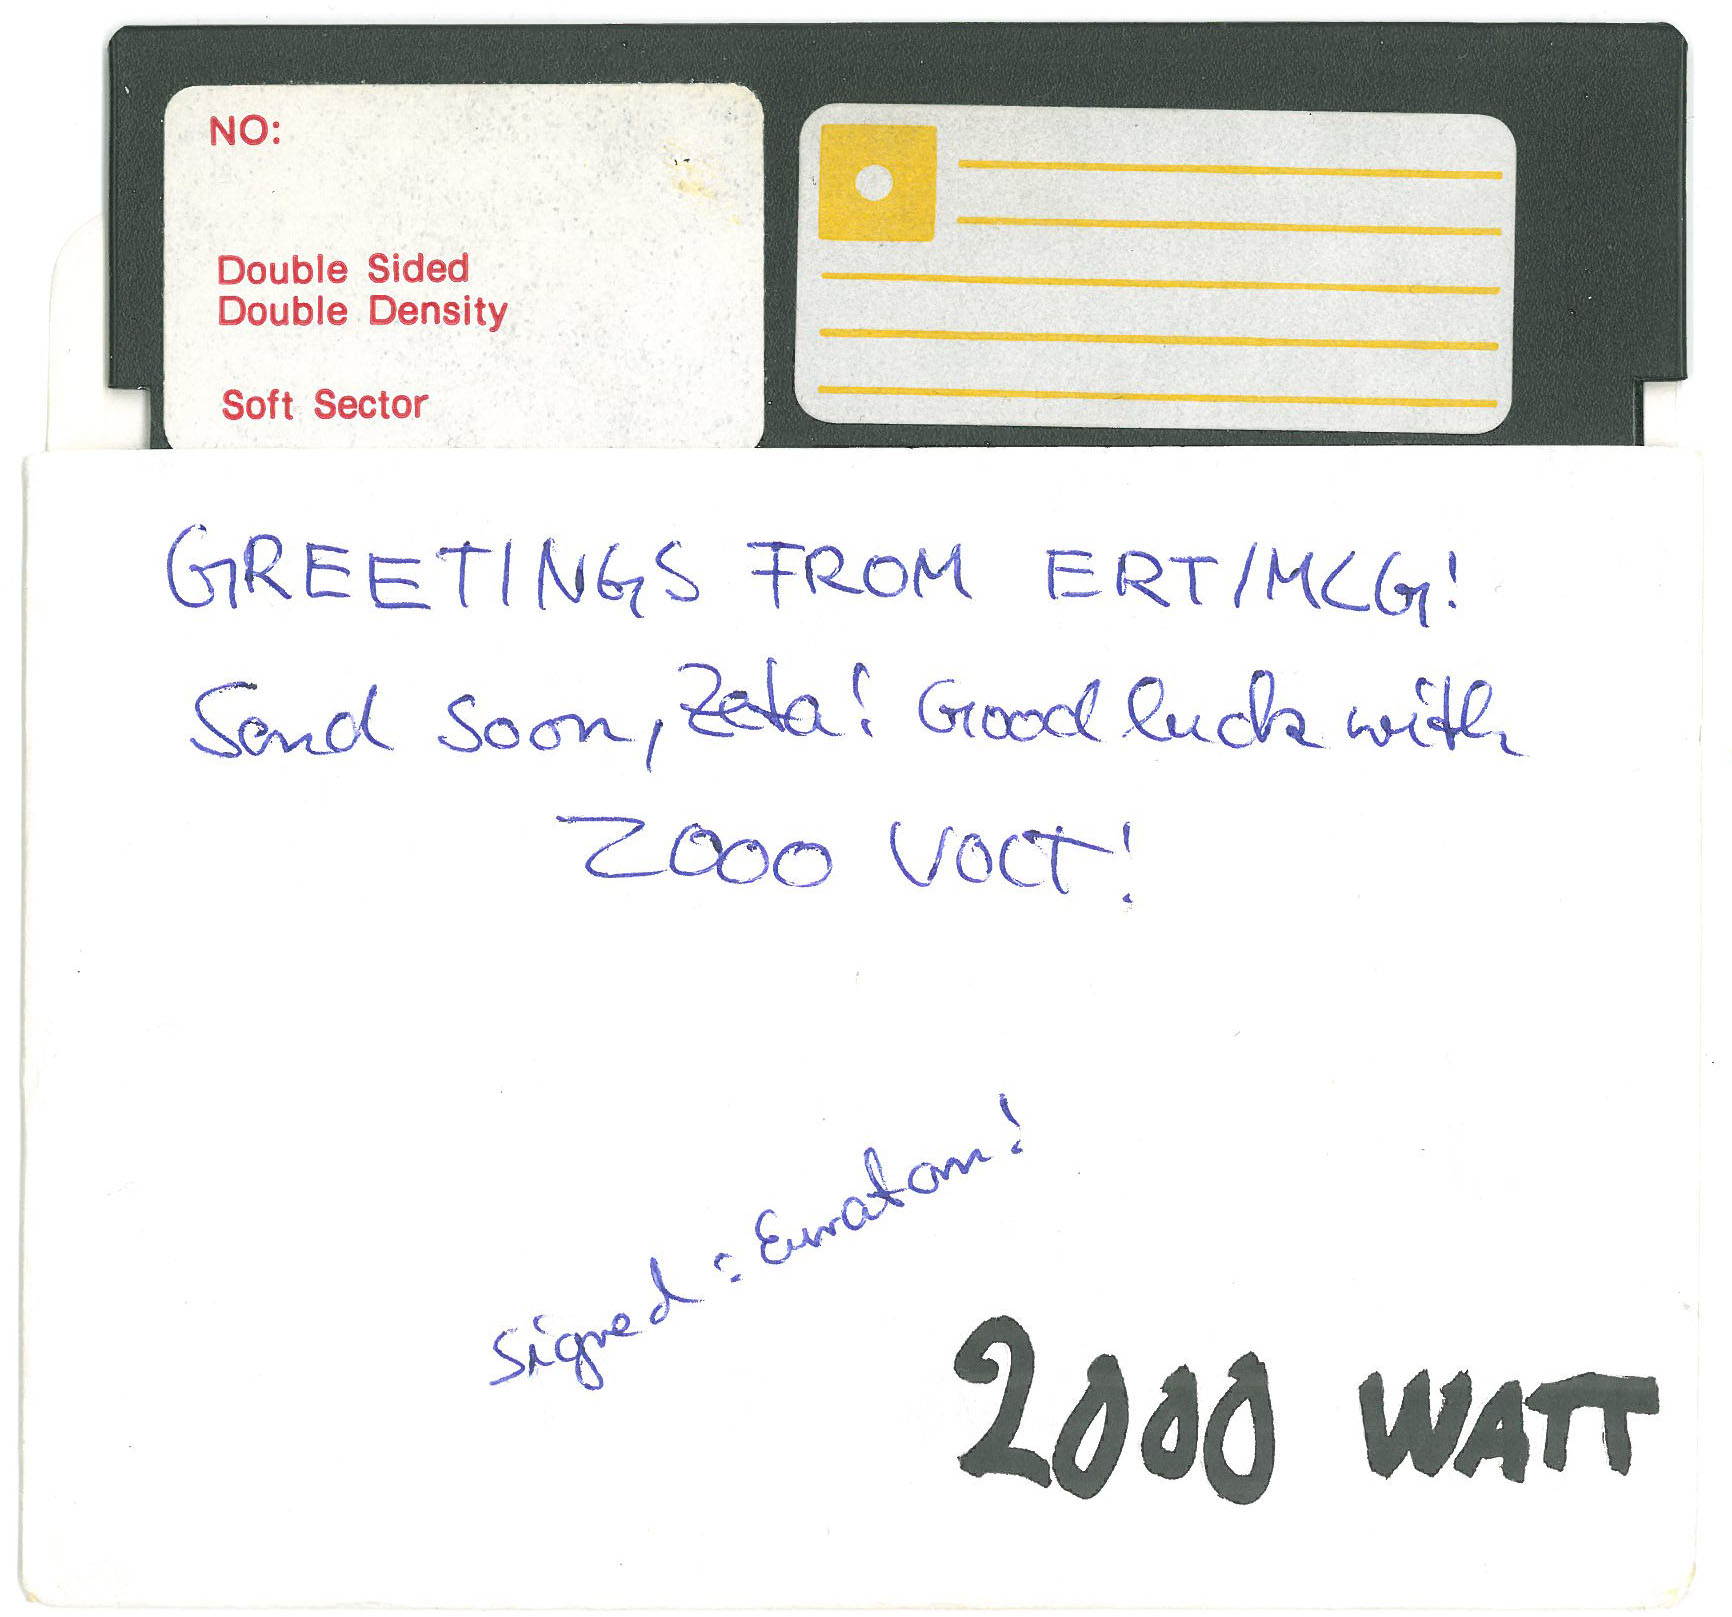 NO:
Double Sided
Double Density
Soft Sector
GREETINGS FROM ERT/MCG!
Send soon, Zeta! Good luck with
2000 VOLT!
signed: Euratom!
2000 WATT